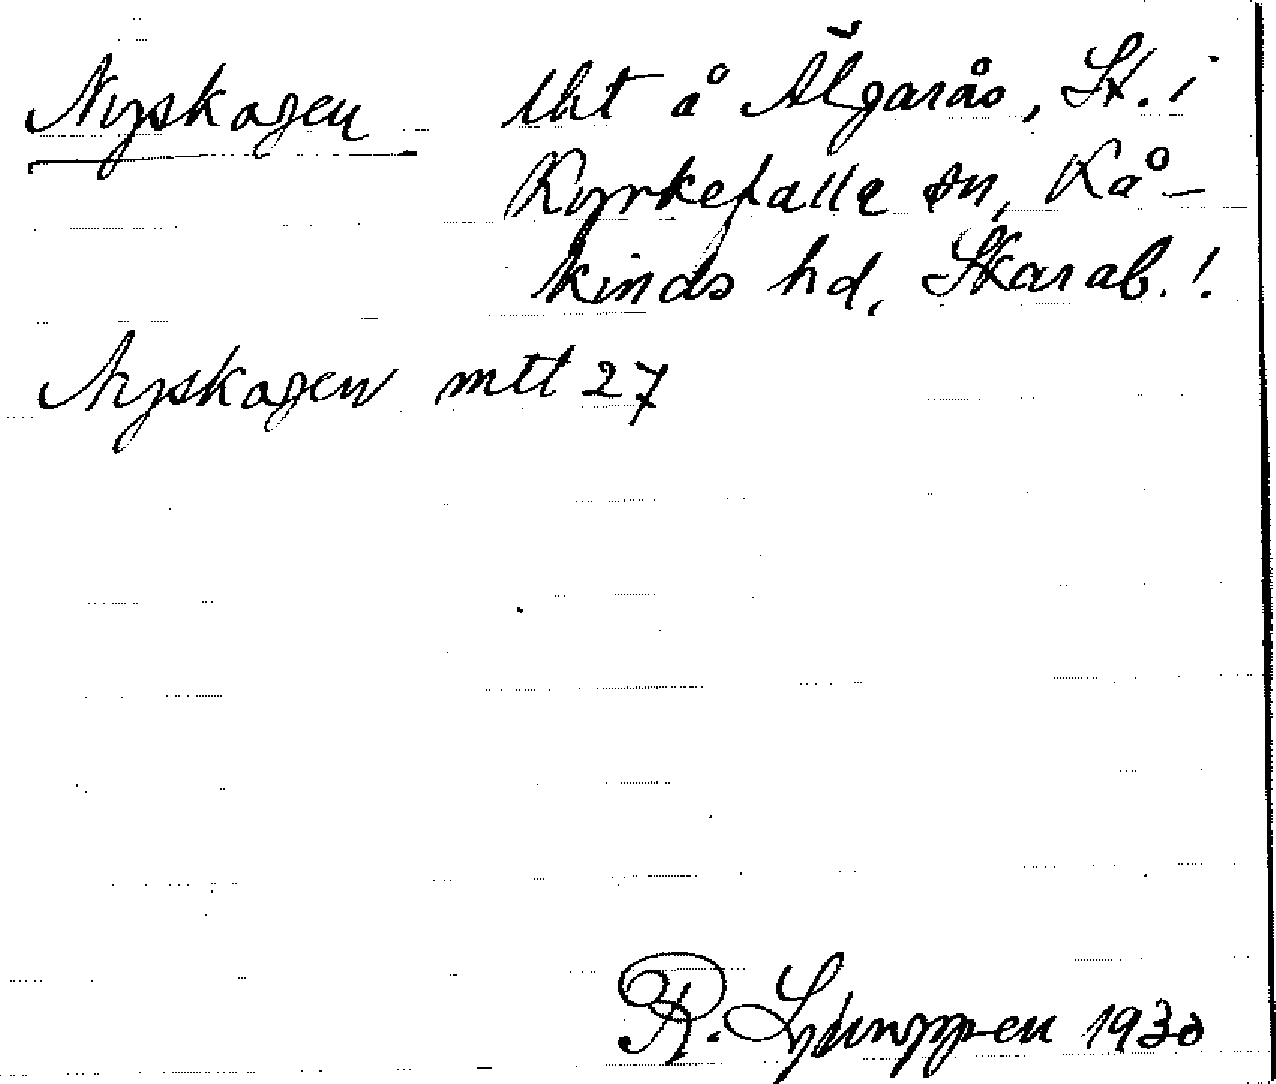 Nyskogen lht å Älgarås, St. i
Kyrkefalla sn, Kå-
kinds hd, Skarab.!
Nyskogen mtl 27
R. Ljunggren 1930